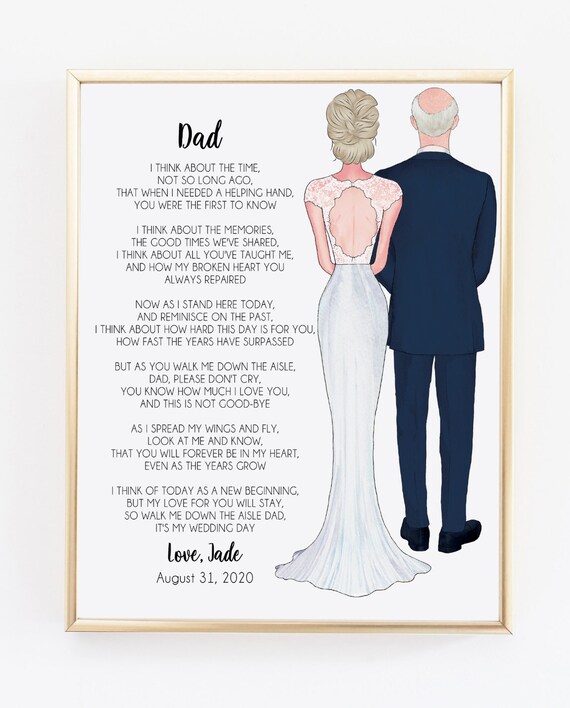 Dad
I THINK ABOUT THE TIME,
NOT SO LONG AGO,
THAT WHEN I NEEDED A HELPING HAND,
YOU WERE THE FIRST TO KNOW
I THINK ABOUT THE MEMORIES,
THE GOOD TIMES WE'VE SHARED,
I THINK ABOUT ALL YOU'VE TAUGHT ME,
AND HOW MY BROKEN HEART YOU
ALWAYS REPAIRED
NOW AS I STAND HERE TODAY,
AND REMINISCE ON THE PAST,
I THINK ABOUT HOW HARD THIS DAY IS FOR YOU,
HOW FAST THE YEARS HAVE SURPASSED
BUT AS YOU WALK ME DOWN THE AISLE,
DAD, PLEASE DON'T CRY,
YOU KNOW HOW MUCH I LOVE YOU,
AND THIS IS NOT GOOD-BYE
AS I SPREAD MY WINGS AND FLY,
LOOK AT ME AND KNOW,
THAT YOU WILL FOREVER BE IN MY HEART,
EVEN AS THE YEARS GROW
I THINK OF TODAY AS A NEW BEGINNING,
BUT MY LOVE FOR YOU WILL STAY,
SO WALK ME DOWN THE AISLE DAD,
IT'S MY WEDDING DAY
Love, Jade
August 31, 2020